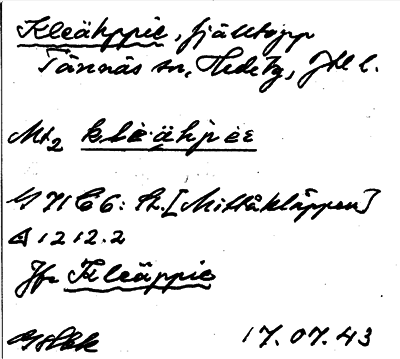 Kleähppie, fjälltopp
Tännäs sn, Hede tg, Jtl l.
Mt2 kle·ähpee
G 71 C6: St. [Mittåkläppen]
A 1212.2
Jfr Kleäppie
17.07.43